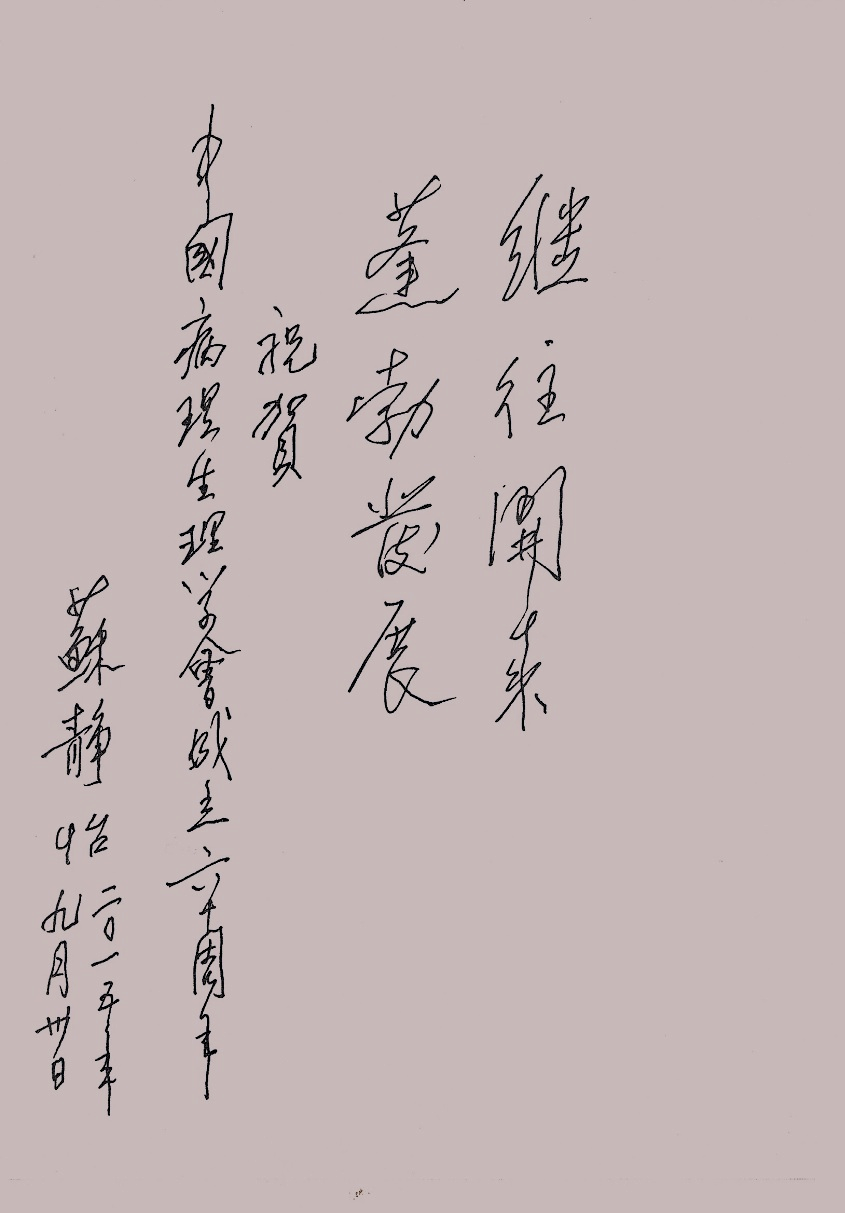 继往開来
蓬勃發展
祝賀
中國病理生理学會成立六十周年
蘇靜怡
二〇一五年
九月卅日